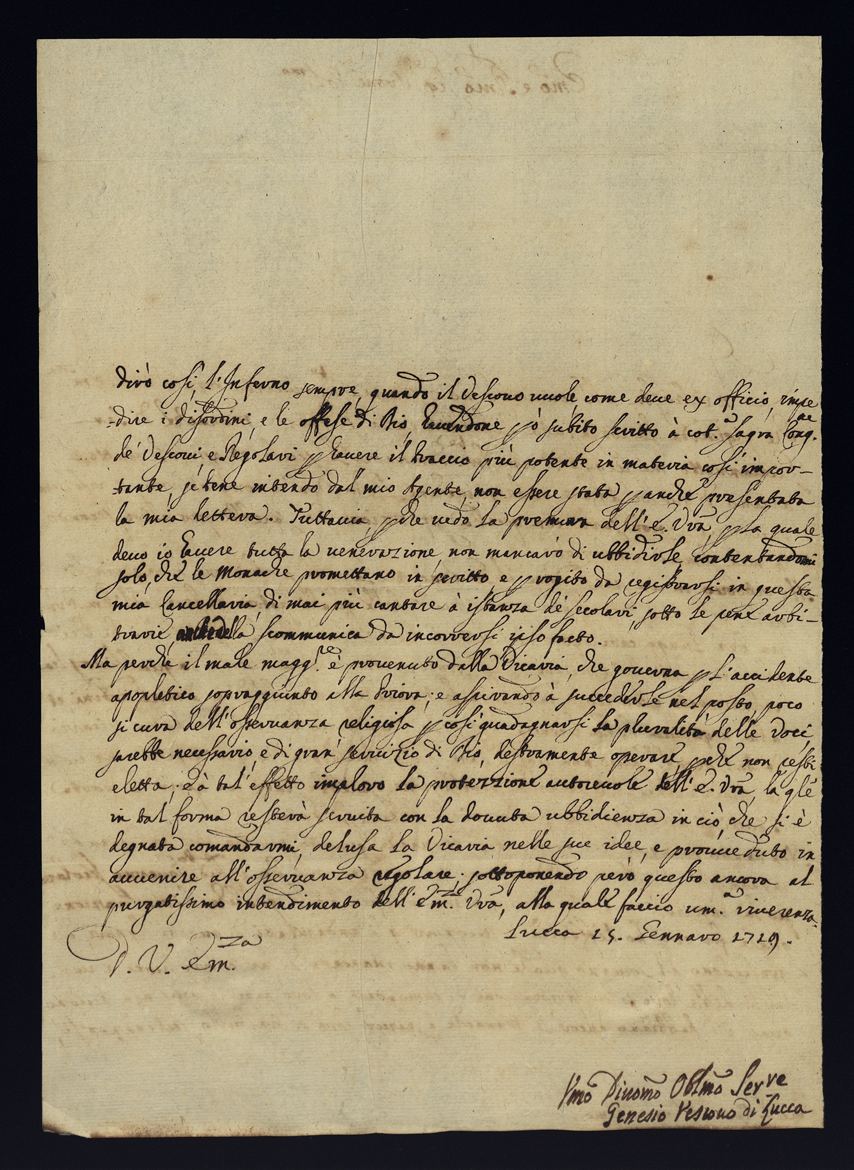 dirò così l'Inferno sempre, quando il Vescovo vuole come deve ex officio, impe
-dire i disordini, e le offese di Dio, havendone però subito scritto à cot.ª Sagra Cong.ne
de' Vescovi e Regolari p havere il braccio più potente in materia così impor-
tante, se bene intendo dal mio Agente non essere stata p anche presentata
la mia lettera. Tuttavia pche vedo la premura dell'E. Vrã p la quale
devo io havere tutta la venerazione non mancarò di ubbidirle contentandomi
solo, che le Monache promettano in scritto e p rogito da registrarsi in questa
mia Cancellaria, di mai più cantare à istanza de' secolari, sotto le pene arbi-
trarie, della scommunica da incorrersi ipso facto.
Ma perche il male magg.re è provenuto dalla Vicaria, che governa p l'accidente
apopletico sopraggiunto alla Priora; e aspirando à succederle nel posto, poco
si cura dell'osservanza religiosa p così guadagnarsi la pluralità delle voci
sarebbe necessario, e di gran servizio di Dio, destramente operare, pche non resti
eletta; e à tal'effetto imploro la protezione autorevole dell'E. Vrã, la qle
in tal forma resterà servita con la dovuta ubbidienza in ciò, che si è
degnata comandarmi, delusa la Vicaria nelle sue idee, e proveduto in
avvenire all'osservanza regolare: sottoponendo però questo ancora al
purgatissimo intendimento dell'Em.za Vrã, alla quale faccio um.ª riverenza.
Lucca 15. Gennaro 1719.
D. V. Em.za
Vmõ Divomõ Oblmõ Ser.re
Genesio Vescovo di Lucca